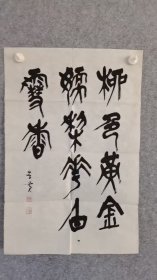 柳色黄金
嫩梨花白
雪香